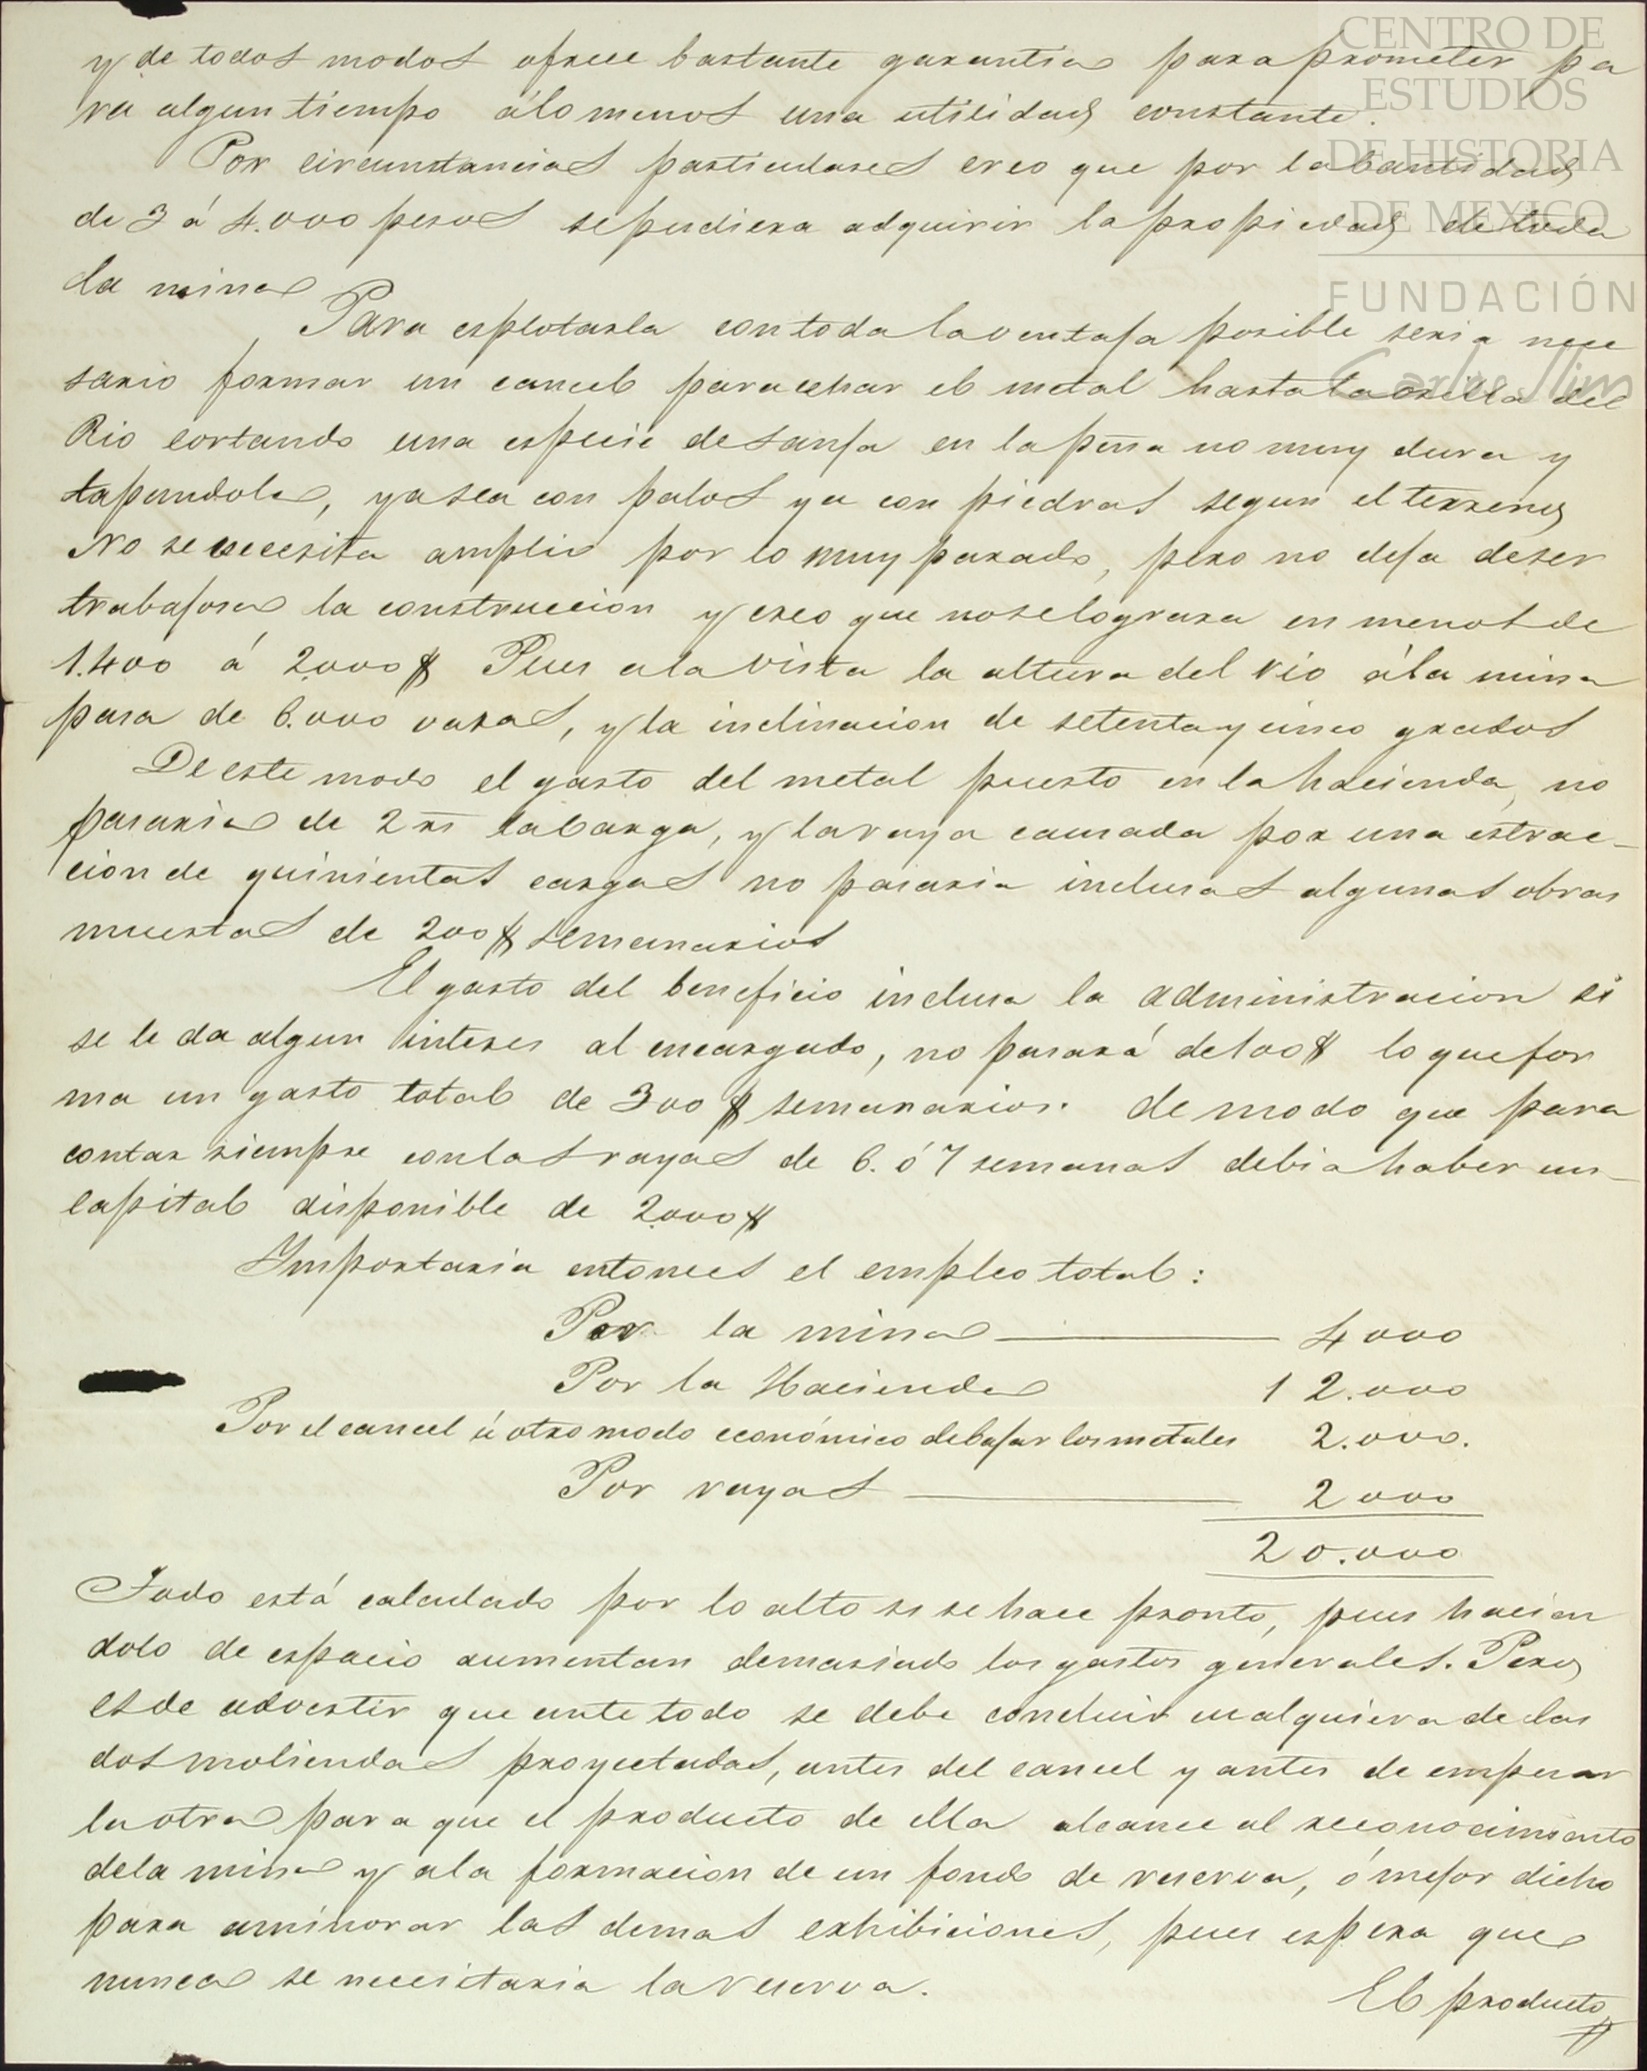 CENTRO DE
ESTUDIOS
DE HISTORIA
DE MEXICO
FUNDACIÓN
Carlos Slim
y de todos modos ofrece bastante garantia para prometer pa
ra algun tiempo á lo menos una utilidad constante.
Por circunstancias particulares creo que por la Cantidad
de 3 á 4.000 pesos se pudiera adquirir la propiedad de toda
la mina
Para esplotarla con toda la ventaja posible seria nece
sario formar un cancel para echar el metal hasta la orilla del
Rio cortando una especie de sanja en la peña no muy dura y
tapandola, ya sea con palos ya con piedras segun el terreno
No se necesita amplio por lo muy parado, pero no deja de ser
trabajosa la construccion y creo que no se lograra en menos de
1.400 á 2.000 $ Pues a la vista la altura del rio á la mina
pasa de 6.000 varas, y la inclinacion de setenta y cinco grados
De este modo el gasto del metal puesto en la hacienda, no
pasaria de 2 rs la Carga, y la raya causada por una estrac-
cion de quinientas cargas no pasaria inclusas algunas obras
muertas de 200 $ semanarios
El gasto del beneficio inclusa la administracion si
se le da algun interes al encargado, no pasará de 100 $ lo que for
ma un gasto total de 300 $ semanarios. de modo que para
contar siempre con las rayas de 6. ó 7 semanas debia haber un
capital disponible de 2.000 $
Importaria entonces el empleo total:
Por la mina 4000
Por la Hacienda 12.000
Por el cancel ú otro modo económico de bajar los metales 2.000.
Por rayas 2000
20.000
Todo está calculado por lo alto si se hace pronto, pues hacien
dolo de espacio aumentan demasiado los gastos generales. Pero
es de advertir que ante todo se debe concluir cualquiera de las
dos moliendas proyectadas, antes del cancel y antes de empesar
la otra para que el producto de ella alcance al reconocimiento
de la mina y a la formacion de un fondo de reserva, ó mejor dicho
para aminorar las demas exhibiciones, pues espera que
nunca se necesitaria la reserva.
El producto